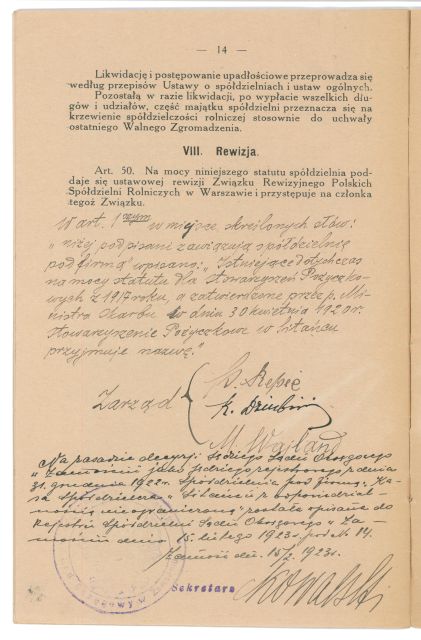 — 14 —
Likwidację i postępowanie upadłościowe przeprowadza się
według przepisów Ustawy o spółdzielniach i ustaw ogólnych.
Pozostałą w razie likwidacji, po wypłacie wszelkich dłu-
gów i udziałów, część majątku spółdzielni przeznacza się na
krzewienie spółdzielczości rolniczej stosownie do uchwały
ostatniego Walnego Zgromadzenia.
VIII. Rewizja.
Art. 50. Na mocy niniejszego statutu spółdzielnia pod-
daje się ustawowej rewizji Związku Rewizyjnego Polskich
Spółdzielni Rolniczych w Warszawie i przystępuje na członka
tegoż Związku.
W art. 1szym w miejsce skreślonych słów:
„niżej podpisani zawiązują spółdzielnię
pod firmą" wpisano: „Istniejące dotychczas
na mocy statutu dla Stowarzyszeń Pożyczko-
wych z 1917 roku, a zatwierdzone przez p. Mi-
nistra Skarbu w dniu 30 kwietnia 1920 r.
Stowarzyszenie Pożyczkowe w Sitańcu
przyjmuje nazwę."
Zarząd
K.
M. Wajland
Na zasadzie decyzji Sędziego Sądu Okręgowego
w Zamościu jako sędziego rejestrowego z dnia
31 grudnia 1922 r. Spółdzielnia pod firmą: „Ka-
sa Spółdzielcza" w Sitańcu z odpowiedzial-
nością nieograniczoną" została wpisana do
Rejestru Spółdzielni Sądu Okręgowego w Za-
mościu dnia 15 lutego 1923 r. pod № 14.
Zamość dn. 15/2 1923 r.
Sekretarz Kowalski